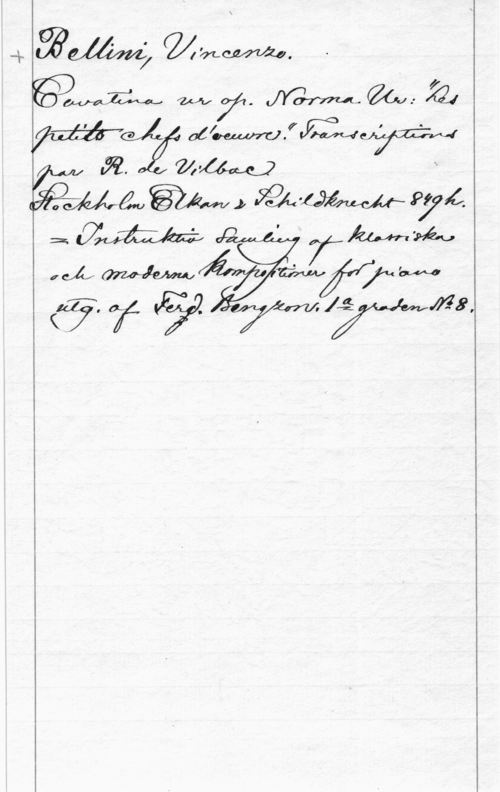 + Bellini, Vincenzo.
Cavatina ur op. Norma. Ur: "Les
petits chefs d'oeuvre". Transcriptions
par R. de Vilbac
Stockholm Elkan & Schildknecht 849 h.
= Instruktiv Samling af klassiska
och moderna kompositioner for piano
utg. af Ferd. Bengzon. 1a graden No 8.